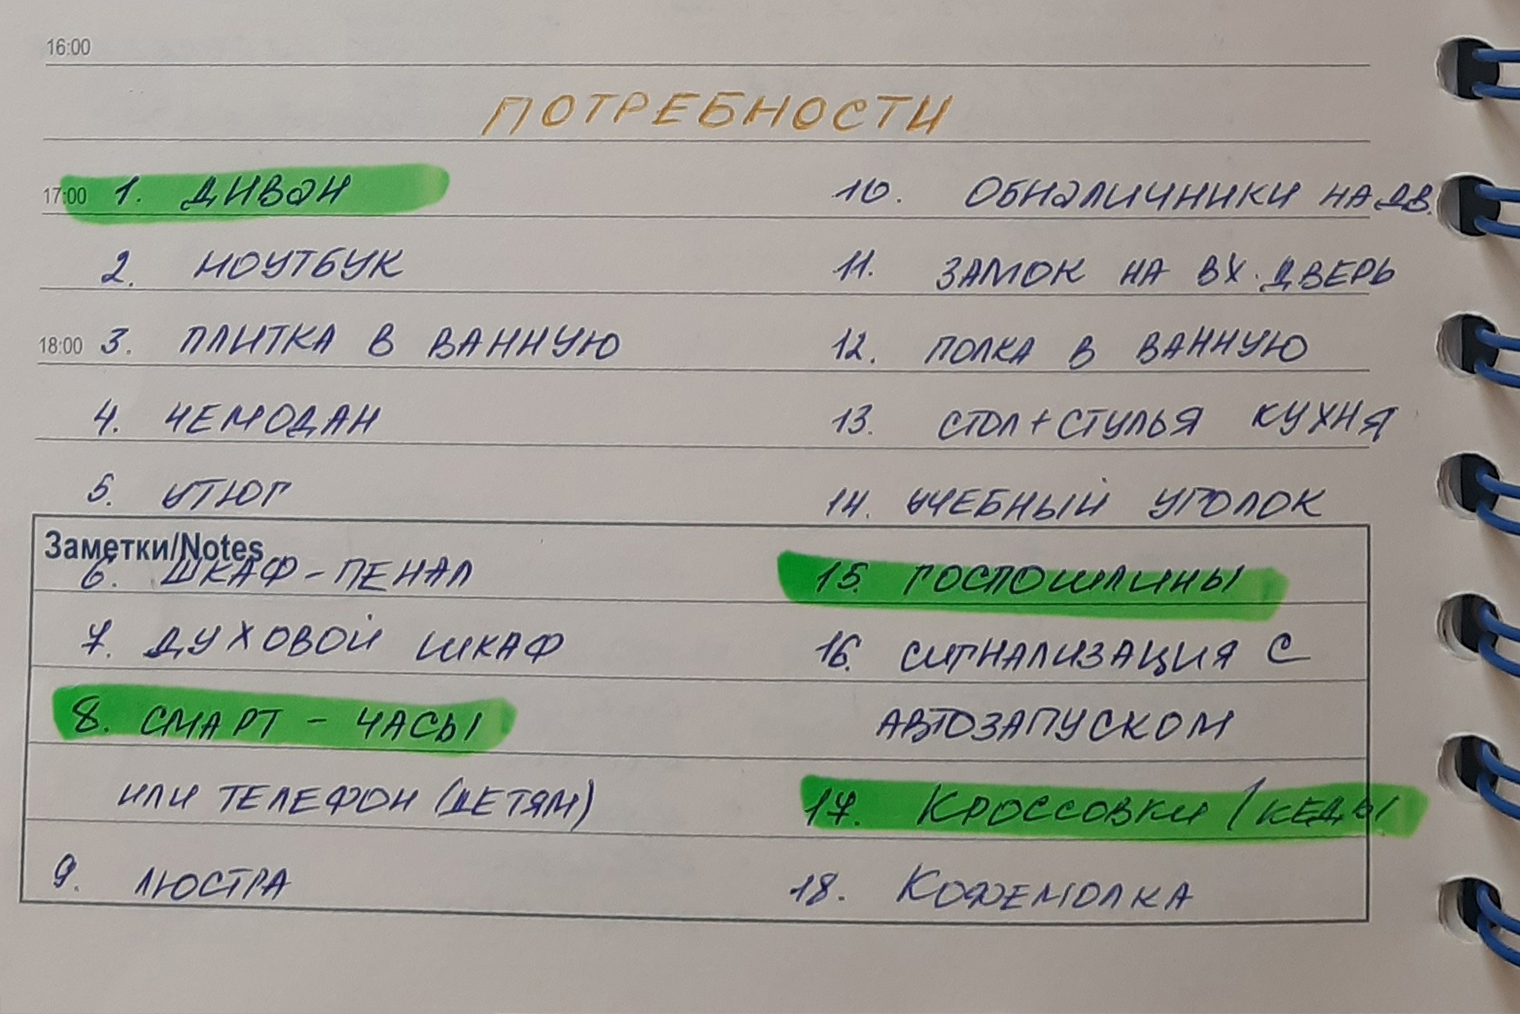 16:00
ПОТРЕБНОСТИ
17:00 1. ДИВАН
2. НОУТБУК
18:00 3. ПЛИТКА В ВАННУЮ
4. ЧЕМОДАН
5. УТЮГ
Заметки/Notes
6. ШКАФ-ПЕНАЛ
7. ДУХОВОЙ ШКАФ
8. СМАРТ - ЧАСЫ
ИЛИ ТЕЛЕФОН (ДЕТЯМ)
9. ЛЮСТРА
10. ОБНАЛИЧНИКИ НА ДВ.
11. ЗАМОК НА ВХ. ДВЕРЬ
12. ПОЛКА В ВАННУЮ
13. СТОЛ + СТУЛЬЯ КУХНЯ
14. УЧЕБНЫЙ УГОЛОК
15. ГОСПОШЛИНЫ
16. СИГНАЛИЗАЦИЯ С
АВТОЗАПУСКОМ
17. КРОССОВКИ / КЕДЫ
18. КОФЕМОЛКА